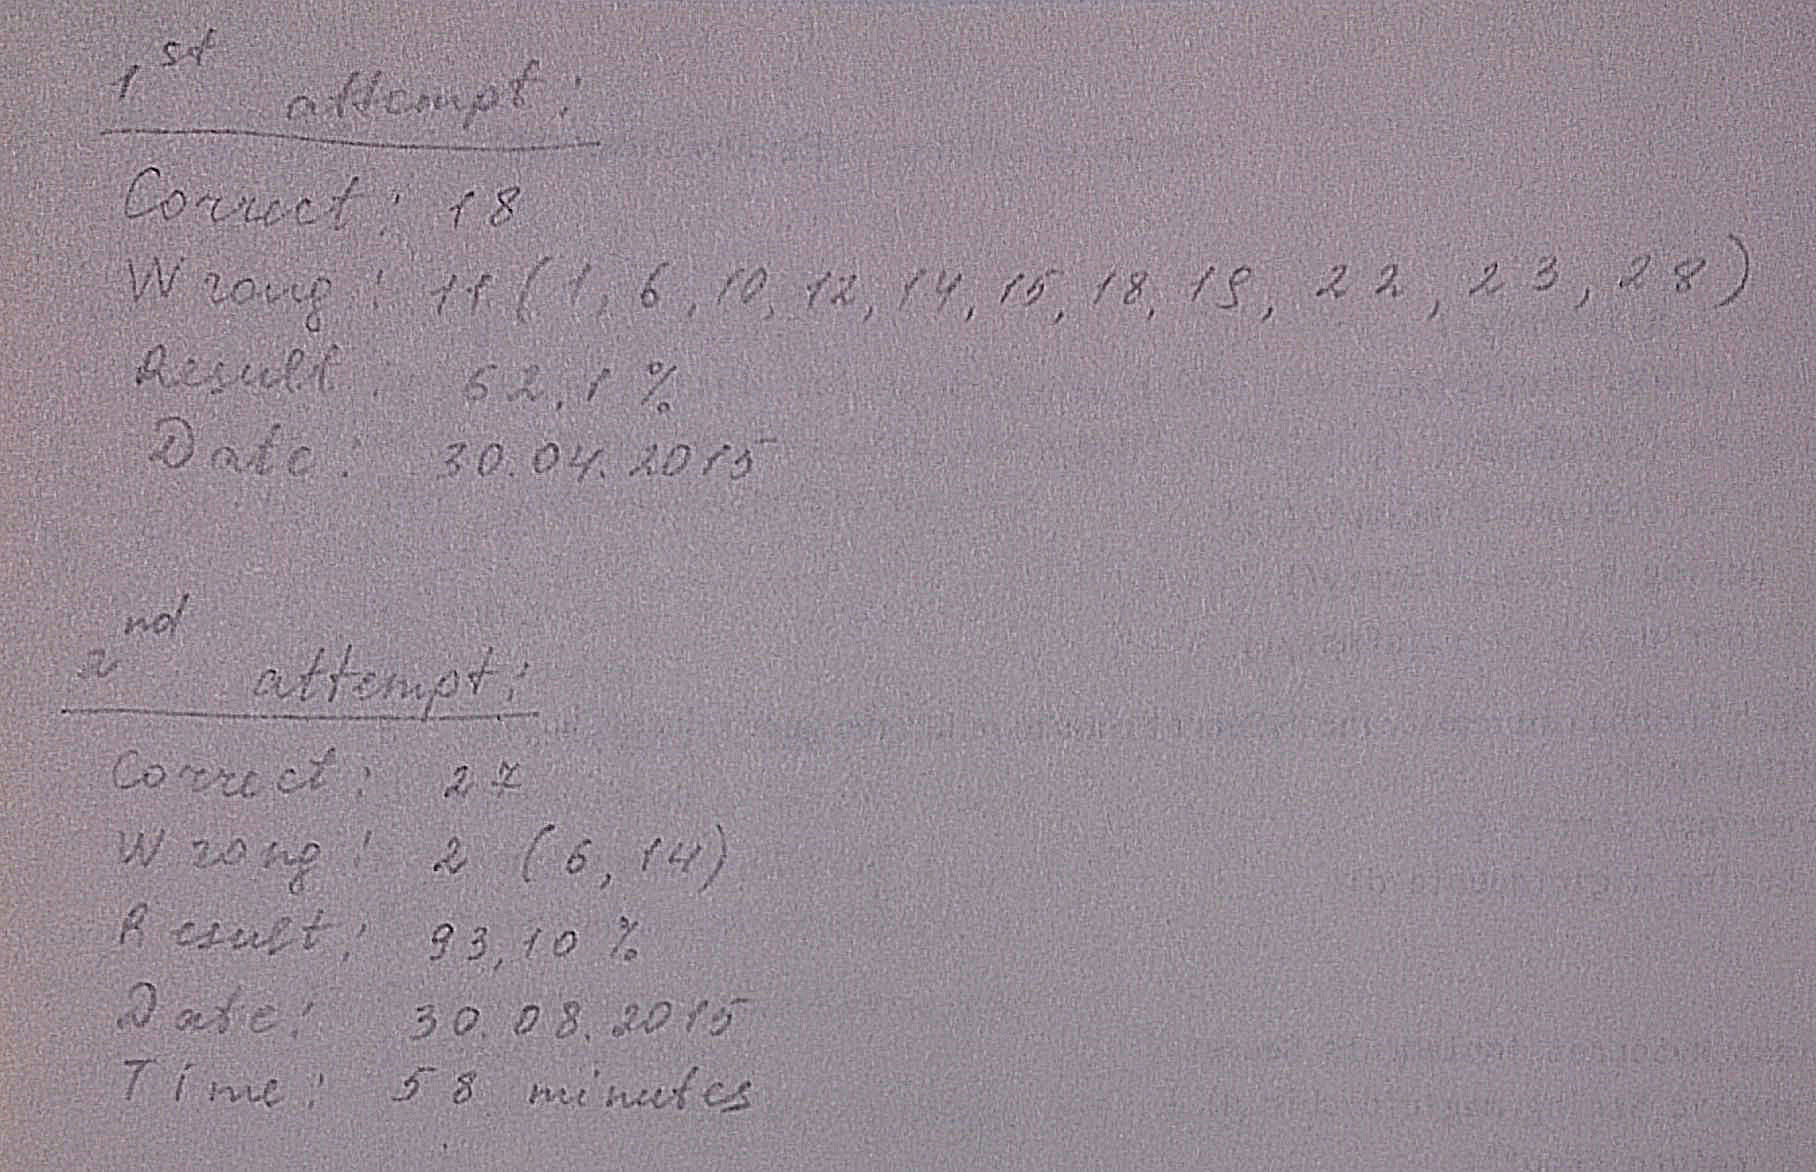 1st attempt:
Correct: 18
Wrong: 11 (1, 6, 10, 12, 14, 15, 18, 19, 22, 23, 28)
Result: 62,1 %
Date: 30.04.2015
2nd attempt:
Correct: 27
Wrong: 2 (6, 14)
Result: 93,10 %
Date: 30.08.2015
Time: 58 minutes